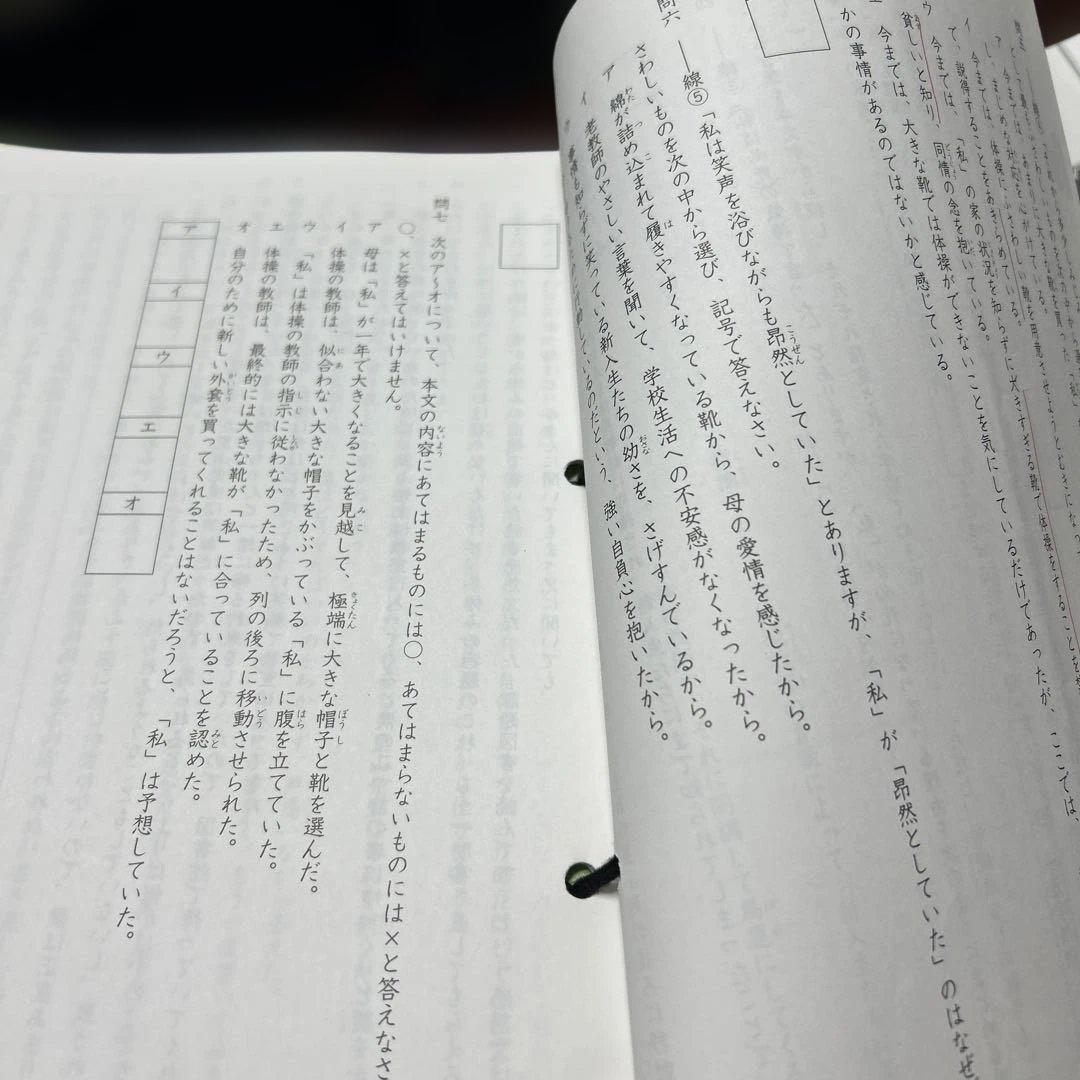 し、まじめな対応を心がけている。
今までは、体操にふさわしい靴を用意させようとむきになっ
で、説得することをあきらめている。
ウ 今までは、「私」の家の状況を知らずに大きすぎる靴で体操をすることを
貧しいと知り、同情の念を抱いている。
エ 今までは、大きな靴では体操ができないことを気にしているだけであったが、ここでは、
かの事情があるのではないかと感じている。
問六 ――線⑤「私は笑声を浴びながらも昂然としていた」とありますが、「私」が「昂然としていた」のはなぜ
さわしいものを次の中から選び、記号で答えなさい。
ア 綿が詰め込まれて履きやすくなっている靴から、母の愛情を感じたから。
イ 老教師のやさしい言葉を聞いて、学校生活への不安感がなくなったから。
ウ 事情も知らずに笑っている新入生たちの幼さを、さげすんでいるから。
いるのだという、強い自負心を抱いたから。
問七 次のア～オについて、本文の内容にあてはまるものには〇、あてはまらないものには×と答えなさ
〇、×と答えてはいけません。
ア 母は「私」が一年で大きくなることを見越して、極端に大きな帽子と靴を選んだ。
イ 体操の教師は、似合わない大きな帽子をかぶっている「私」に腹を立てていた。
ウ 「私」は体操の教師の指示に従わなかったため、列の後ろに移動させられた。
エ 体操の教師は、最終的には大きな靴が「私」に合っていることを認めた。
オ 自分のために新しい外套を買ってくれることはないだろうと、「私」は予想していた。
ア
イ
ウ
エ
オ